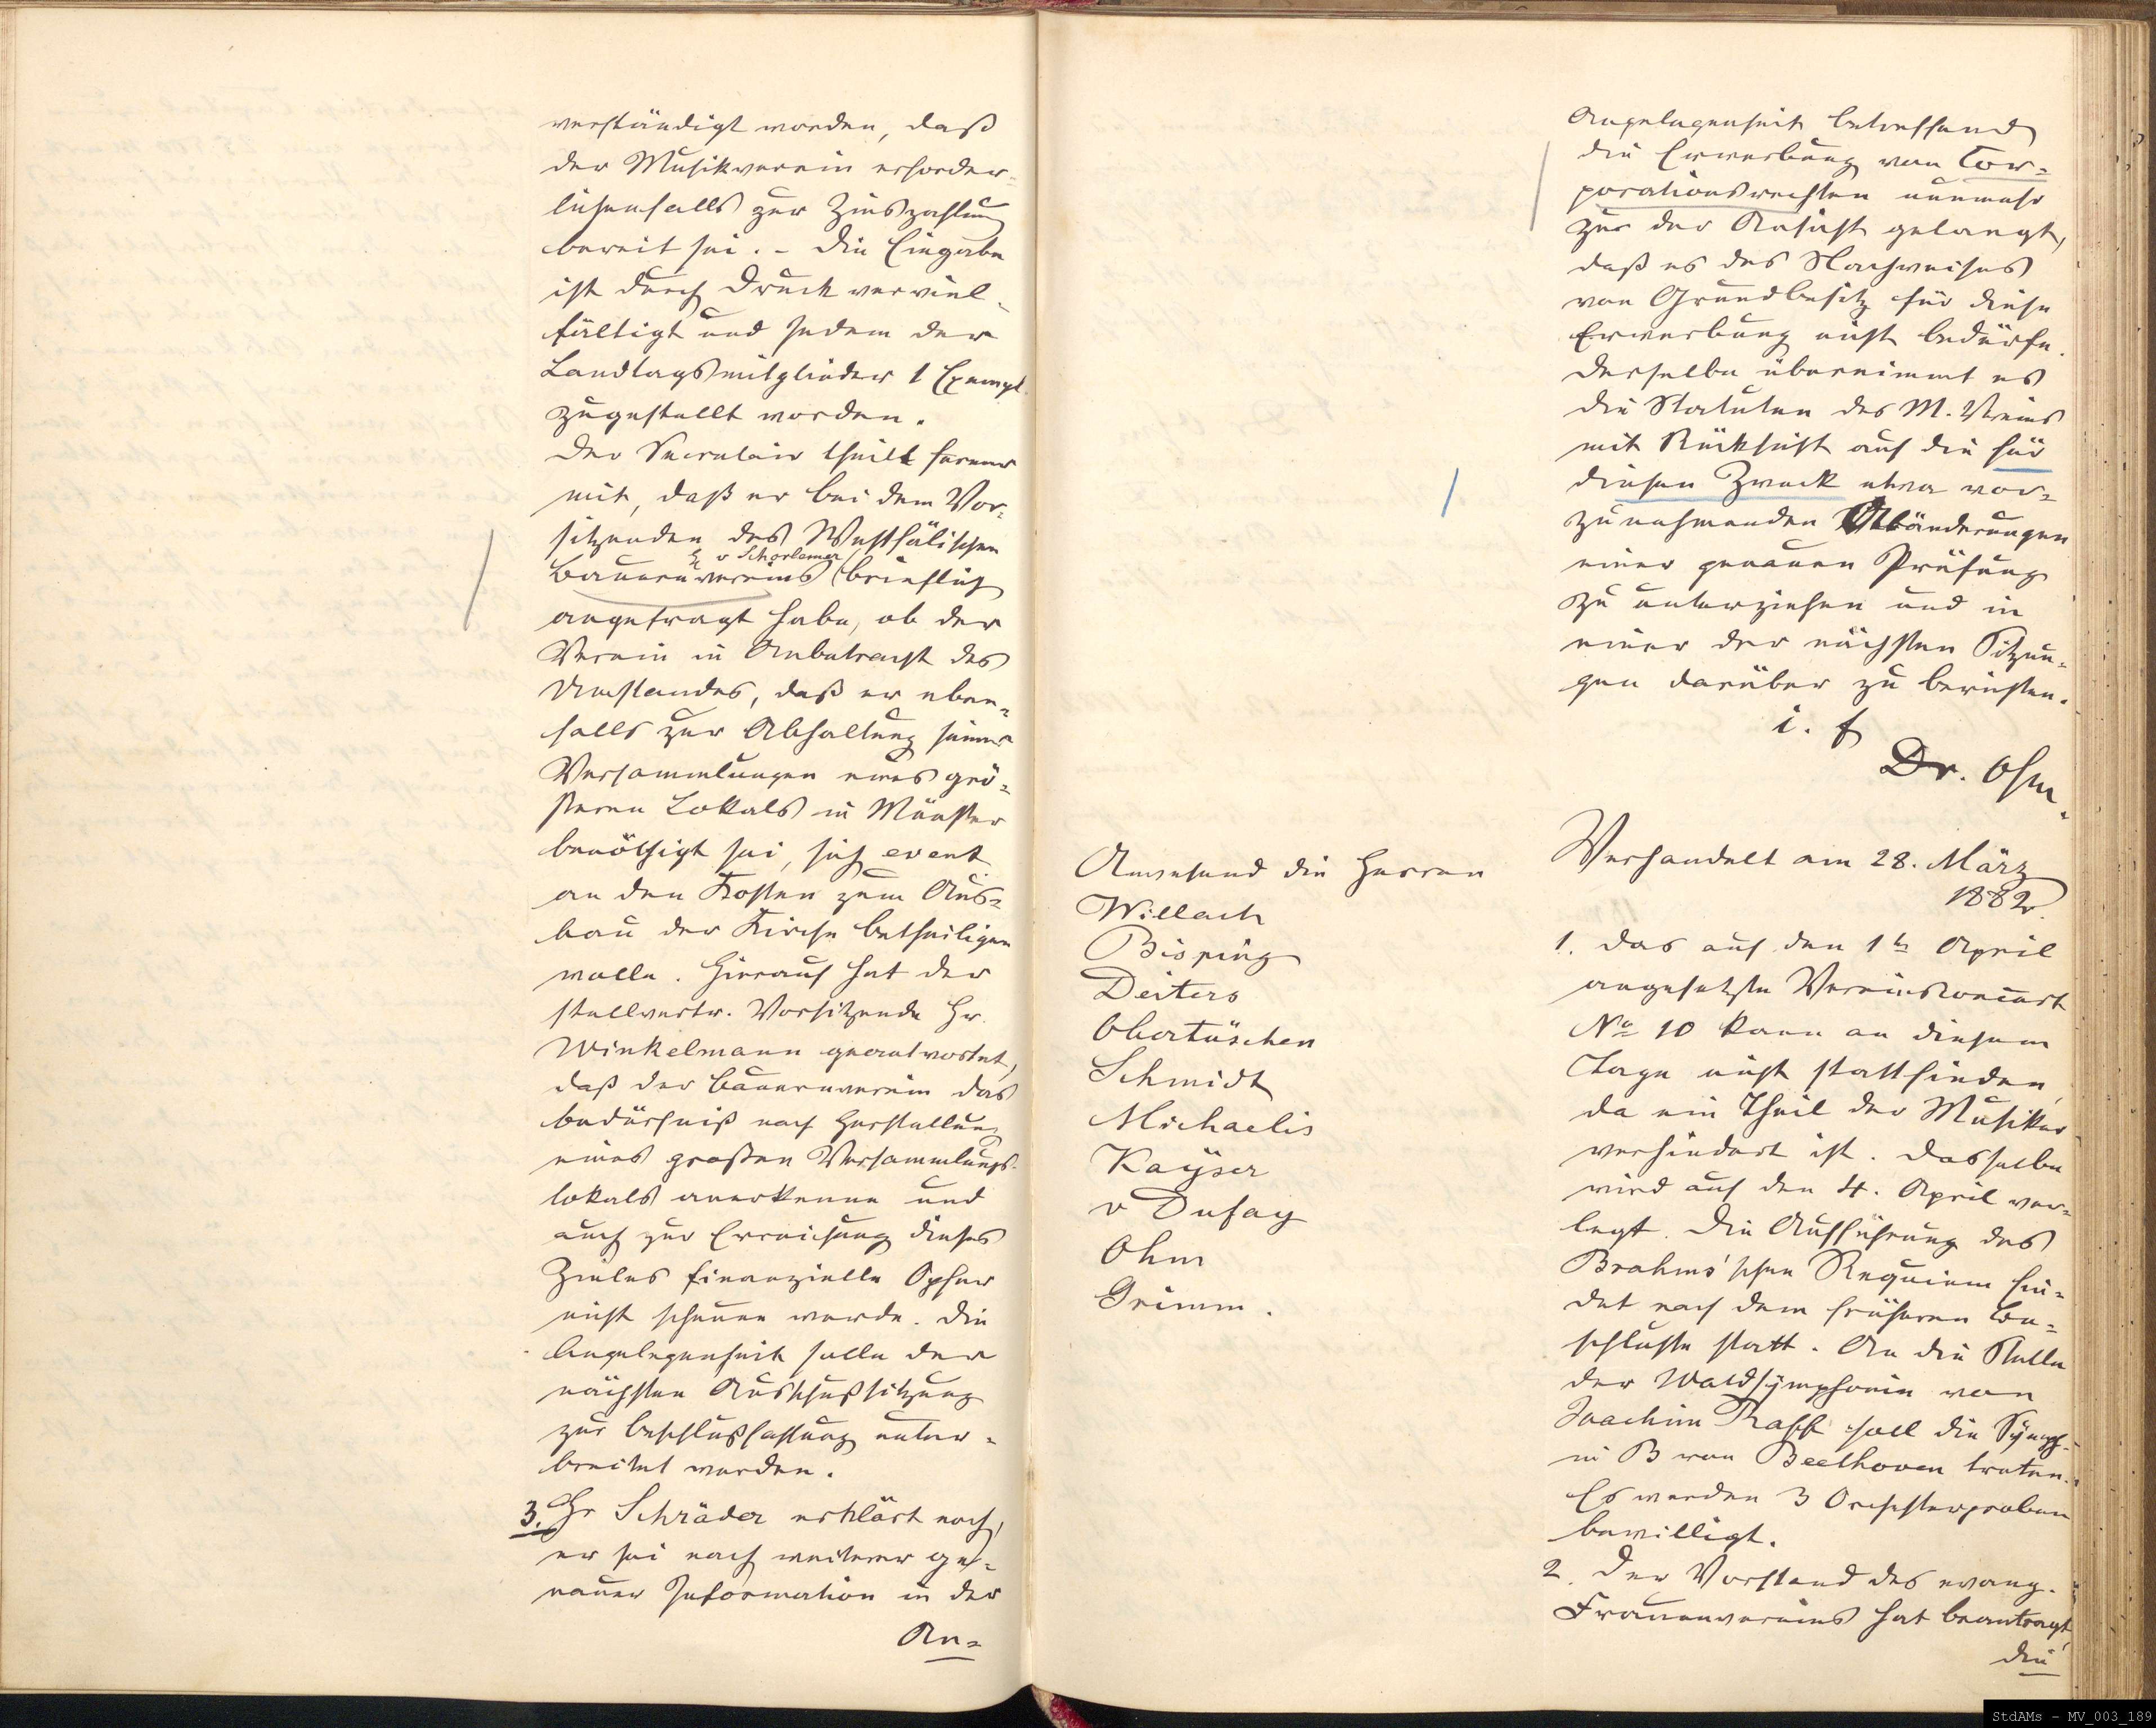 verständigt worden, daß
der Musikverein erforder-
lichenfalls zur Zinszahlung
bereit sei. - Die Eingabe
ist durch Druck verviel-
fältigt und jedem der
Landtagsmitglieder 1 Exempl.
zugestellt worden.
Der Secretair theilt ferner
mit, daß er bei dem Vor-
sitzenden des Westfälischen
H v Schorlemer
Bauernvereins brieflich
angefragt habe, ob der
Verein in Anbetracht des
Umstandes, daß er eben-
falls zur Abhaltung seiner
Versammlungen eines grö-
ßeren Lokals in Münster
benöthigt sei, sich event.
an den Kosten zum Aus-
bau der Kirche betheiligen
wolle. Hierauf hat der
stellvertr. Vorsitzende Hr.
Winkelmann geantwortet,
daß der Bauernverein das
Bedürfniß nach Herstellung
eines großen Versammlungs-
lokals anerkenne und
auch zur Erreichung dieses
Zieles finanzielle Opfer
nicht scheuen werde. Die
Angelegenheit solle der
nächsten Ausschußsitzung
zur Beschlußfassung unter-
breitet werden.
3. Hr Schräder erklärt noch,
er sei nach weiterer ge-
nauer Information in der
An-
Angelegenheit betreffend
die Erwerbung von Cor-
porationsrechten nunmehr
zu der Ansicht gelangt,
daß es des Nachweises
von Grundbesitz für diese
Erwerbung nicht bedürfe.
Derselbe übernimmt es
die Statuten des M. Vereins
mit Rücksicht auf die für
diesen Zweck etwa vor-
zunehmenden Abänderungen
einer genauen Prüfung
zu unterziehen und in
einer der nächsten Sitzun-
gen darüber zu berichten.
i. f
Dr. Ohm.
Anwesend die Herren
Willach
Bisping
Deiters
Obertüschen
Schmidt
Michaelis
Kaÿser
v Dufay
Ohm
Grimm.
Verhandelt am 28. März
1882.
1. Das auf den 1ten April
angesetzte Vereinsconcert
No 10 kann an diesem
Tage nicht stattfinden,
da ein Theil der Musiker
verhindert ist. Dasselbe
wird auf den 4. April ver-
legt. Die Aufführung des
Brahms'schen Requiem fin-
det nach dem früheren Be-
schlusse statt. An die Stelle
der Waldsÿmphonie von
Joachim Raff soll die Sÿmph.
in B von Beethoven treten.
Es werden 3 Orchesterproben
bewilligt.
2. Der Vorstand des evang.
Frauenvereins hat beantragt,
die
StdAMs - MV_003_189